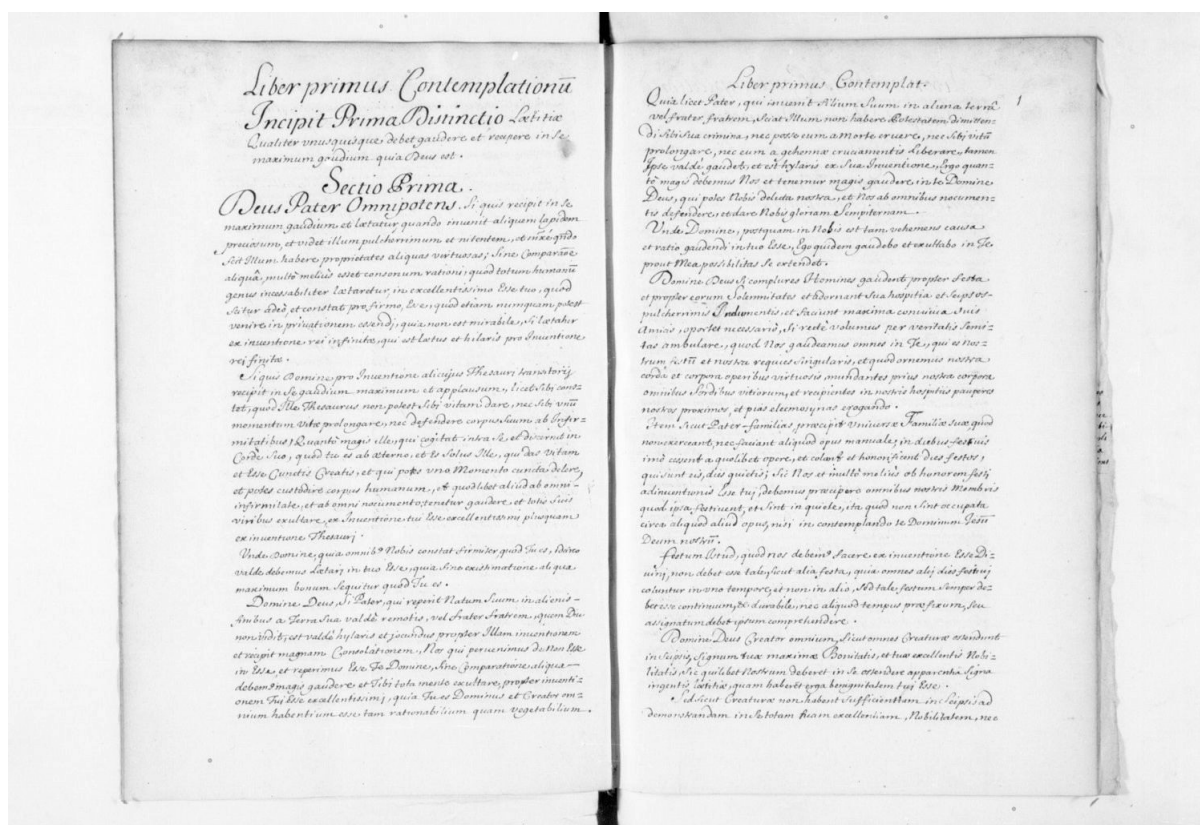 Liber primus Contemplationū
Incipit Prima Distinctio Lætitiæ
Qualiter vnusquisque debet gaudere et recipere in se
maximum gaudium quia Deus est.
Sectio Prima.
Deus Pater Omnipotens. Si quis recipit in se
maximum gaudium, et lætatur, quando invenit aliquem lapidem
preciosum, et videt illum pulcherrimum et nitentem, et qñdo
scit Illum habere proprietates aliquas virtuosas; Sine Comparaõne
aliquâ, multò meliùs esset consonum rationi, quod totum humanũ
genus incessabiliter lætaretur, in excellentissimo Esse tuo, quod
scitur adeò, et constat pro firmo, Esse, quod etiam numquam potest
venire in privationem essendi; quia non est mirabile, Si lætatur
ex inventione rei infinitæ, qui est lætus et hilaris pro Inventione
rei finitæ.
Si quis Domine, pro Inventione alicujus Thesauri transitorij
recipit in se gaudium maximum et applausum, licet Sibi cons-
tet, quod Ille Thesaurus non potest Sibi vitam dare, nec Sibi vnũ
momentum vitæ prolongare, nec defendere corpus Suum ab Infir-
mitatibus; Quantò magis ille, qui cogitat intra Se, et discernit in
Corde Suo, quod tu es ab æterno, et tu Solus Ille, qui das vitam
et Esse Cunctis Creatis, et qui potes vno Momento cuncta delere,
et potes custodire corpus humanum, et quodlibet aliud ab omni
infirmitate, et ab omni nocumento; tenetur gaudere, et totis Suis
viribus exultare, ex Inventione tui Esse excellentissimi plusquam
ex inventione Thesauri.
Vnde Domine, quia omnib⁹ Nobis constat firmiter quod Tu es, Idcirco
valde debemus Lætari, in tuo Esse, quia sine existimatione aliqua
maximum bonum Sequitur quod Tu es.
Domine Deus, Si Pater, qui reperit Natum Suum in alienis
finibus a Terra Sua valdè remotis, vel frater Fratrem, quem Diu
non vidit; est valdè hylaris et jocundus propter Illam inventionem
et recipit magnam Consolationem, Nos qui pervenimus de Non Esse
in Esse, et reperimus Esse Te Domine, sine Comparatione aliqua
debem⁹ magis gaudere et Tibi tota mente exultare, propter inventi-
onem Tui Esse excellentissimi, quia Tu es Dominus et Creator om-
nium habentium esse, tam rationabilium quam vegetabilium.
Liber primus Contemplat.
1
Quia licet Pater, qui invenit Filium Suum in aliena terrâ
vel frater fratrem, Sciat Illum non habere Potestatem dimitten-
di Sibi Sua crimina, nec posse eum a Morte eruere, nec Sibi vitã
prolongare, nec eum a gehennæ cruciamentis Liberare, tamen
Ipse valdè gaudet, et est hylaris ex Sua Inventione, Ergo quan-
tò magis debemus Nos et tenemur magis gaudere in te Domine
Deus, qui potes Nobis delicta nostra, et Nos ab omnibus nocumen-
tis defendere, et dare Nobis gloriam Sempiternam.
Vnde Domine, postquam in Nobis est tam vehemens causa
et ratio gaudendi in tuo Esse, Ego quidem gaudebo et exultabo in Te
prout Mea possibilitas Se extendet.
Domine Deus Si complures Homines gaudent propter festa
et propter eorum Solemnitates et adornant Sua hospitia et Seipsos
pulcherrimis Indumentis, et faciunt maxima convivia Suis
Amicis, oportet necessariò, Si rectè volumus per veritatis Semi-
tas ambulare, quod Nos gaudeamus omnes in Te, qui es nos-
trum festũ et nostra requies Singularis, et quod ornemus nostra
corda et corpora operibus virtuosis, mundantes prius nostra corpora
omnibus Sordibus vitiorum, et recipientes in nostris hospitijs pauperes
nostros proximos, et pias eleemosynas erogando.
Item Sicut Pater-familias præcipit Universæ Familiæ Suæ, quod
non exerceant, nec faciant aliquod opus manuale, in diebus festiuis
imò cessent a quolibet opere, et colant et honorificent dies festos,
qui sunt eis, dies quietis; Sic Nos et multò meliùs ob honorem festi
adinventionis Esse tuj, debemus præcipere omnibus nostris Membris
quod ipsa festivent, et sint in quiete, ita quod non sint occupata
circa aliquod aliud opus, nisi in contemplando te Dominum Iesũ
Deum nostrũ.
Festum Istud, quod nos debem⁹ facere ex inventione Esse Di-
vini, non debet esse tale, sicut alia festa, quia omnes alij dies festivi
coluntur in vno tempore, et non in alio, Sed tale festum semper de-
bet esse continuum, et durabile, nec aliquod tempus præfixum, seu
assignatum debet ipsum comprehendere.
Domine Deus Creator omnium, Sicut omnes Creaturæ ostendunt
in Seipsis, Signum tuæ maximæ Bonitatis, et tuæ excellentis Nobi-
litatis, Sic quilibet Nostrum deberet in Se ostendere apparentia Signa
ingentis lætitiæ, quam haberet erga benignitatem tuj Esse.
Sed sicut Creaturæ non habent Sufficientiam in Seipsis ad
demonstrandam in Se totam tuam excellentiam, Nobilitatem, nec